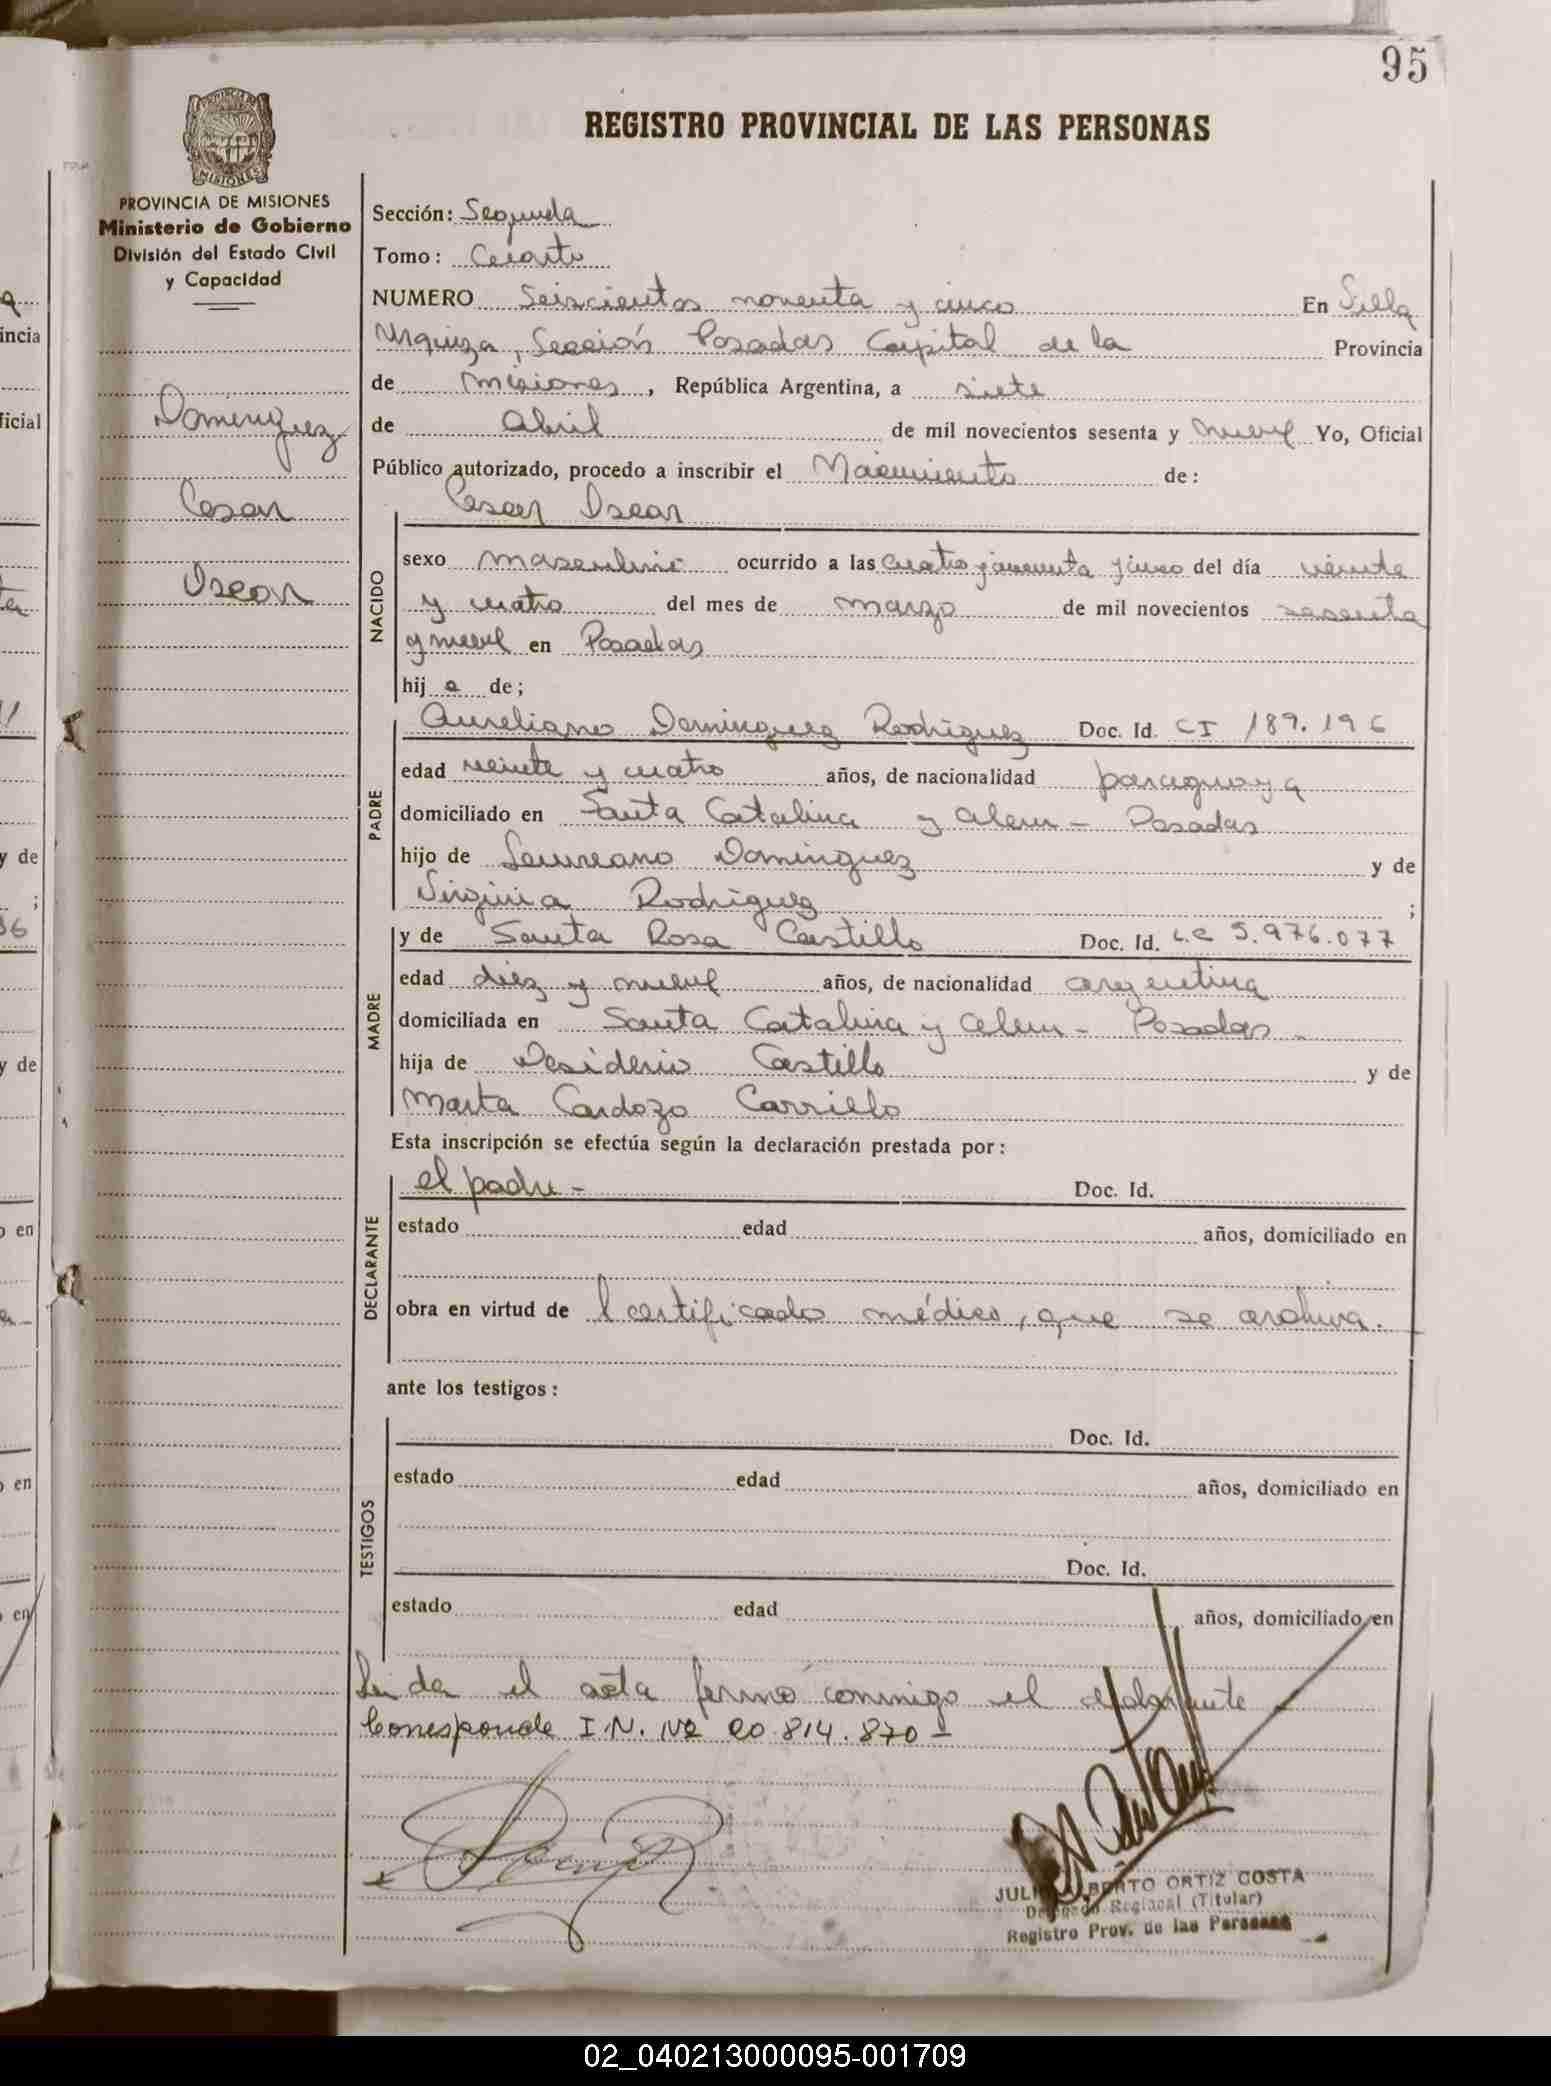 95
REGISTRO PROVINCIAL DE LAS PERSONAS
PROVINCIA DE MISIONES
MISIONES
PROVINCIA DE MISIONES
Ministerio de Gobierno
División del Estado Civil
y Capacidad
Dominguez
Cesar
Oscar
Sección: Segunda
Tomo: Cuarto
NUMERO Seiscientos noventa y cinco En Villa
Urquiza, Sección Posadas Capital de la Provincia
de Misiones, República Argentina, a siete
de Abril de mil novecientos sesenta y nueve Yo, Oficial
Público autorizado, procedo a inscribir el Nacimiento de:
Cesar Oscar
NACIDO
sexo masculino ocurrido a las cuatro y cuarenta y cinco del día veinte
y cuatro del mes de marzo de mil novecientos sesenta
y nueve en Posadas
hij o de;
PADRE
Aureliano Dominguez Rodriguez Doc. Id. CI 189.196
edad veinte y cuatro años, de nacionalidad paraguaya
domiciliado en Santa Catalina y Alem - Posadas
hijo de Laureano Dominguez y de
Virginia Rodriguez ;
MADRE
y de Santa Rosa Castillo Doc. Id. L.C 5.976.077
edad diez y nueve años, de nacionalidad argentina
domiciliada en Santa Catalina y Alem - Posadas -
hija de Desiderio Castillo y de
Marta Cardozo Carrillo
Esta inscripción se efectúa según la declaración prestada por:
DECLARANTE
el padre - Doc. Id.
estado edad años, domiciliado en
obra en virtud de l certificado médico, que se archiva.
ante los testigos:
TESTIGOS
Doc. Id.
estado edad años, domiciliado en
Doc. Id.
estado edad años, domiciliado en
Leida el acta firmó conmigo el declarante
Corresponde I.N. Nº 20.814.870 -
JULIO ALBERTO ORTIZ COSTA
Delegado Regional (Titular)
Registro Prov. de las Personas
02_040213000095-001709